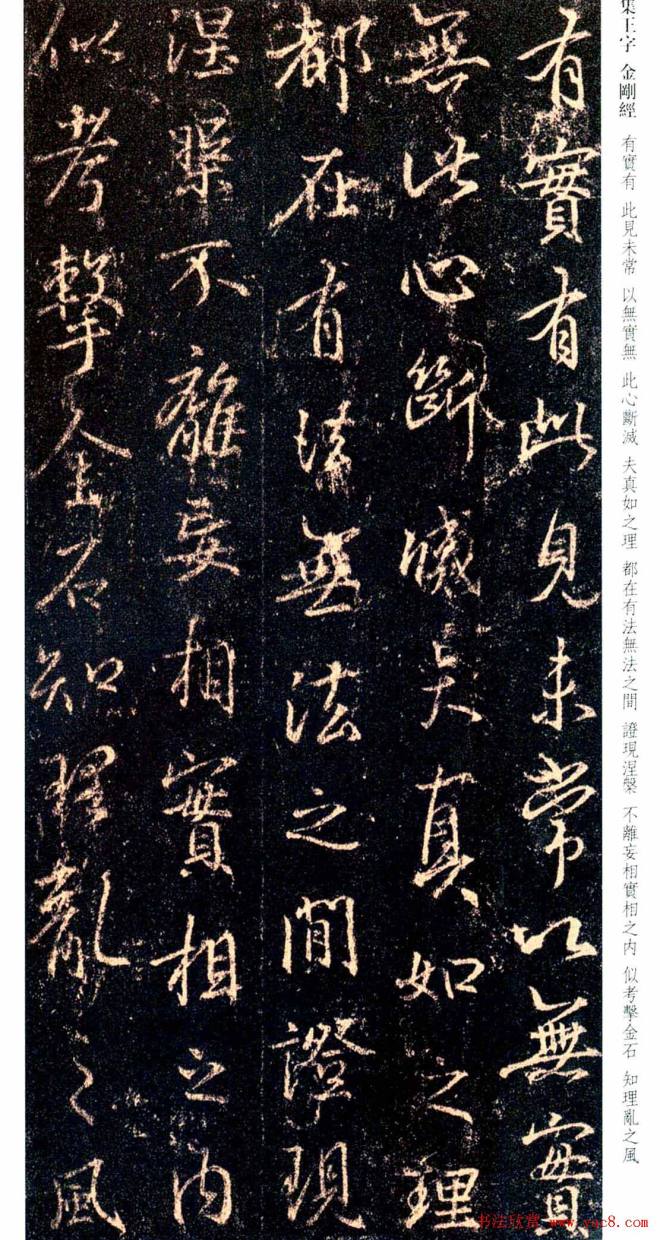 集王字 金剛經 有實有 此見未常 以無實無 此心斷滅 夫真如之理 都在有法無法之間 證現涅槃 不離妄相實相之内 似考擊金石 知理亂之風
有實有此見未常以無實
無此心斷滅夫真如之理
都在有法無法之間證現
涅槃不離妄相實相之内
似考擊金石知理亂之風
书法欣赏 www.yac8.com